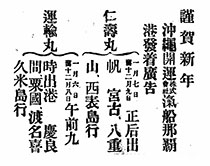 謹賀新年
沖繩開運株式會社汽船那覇
港發着廣告
仁壽丸
一月七日 十二月九日 正后出
帆 宮古、八重
山、西表島行
運輸丸
一月六日 十二月八日 午前九
時出港 慶良
間、粟國、渡名喜
久米島行